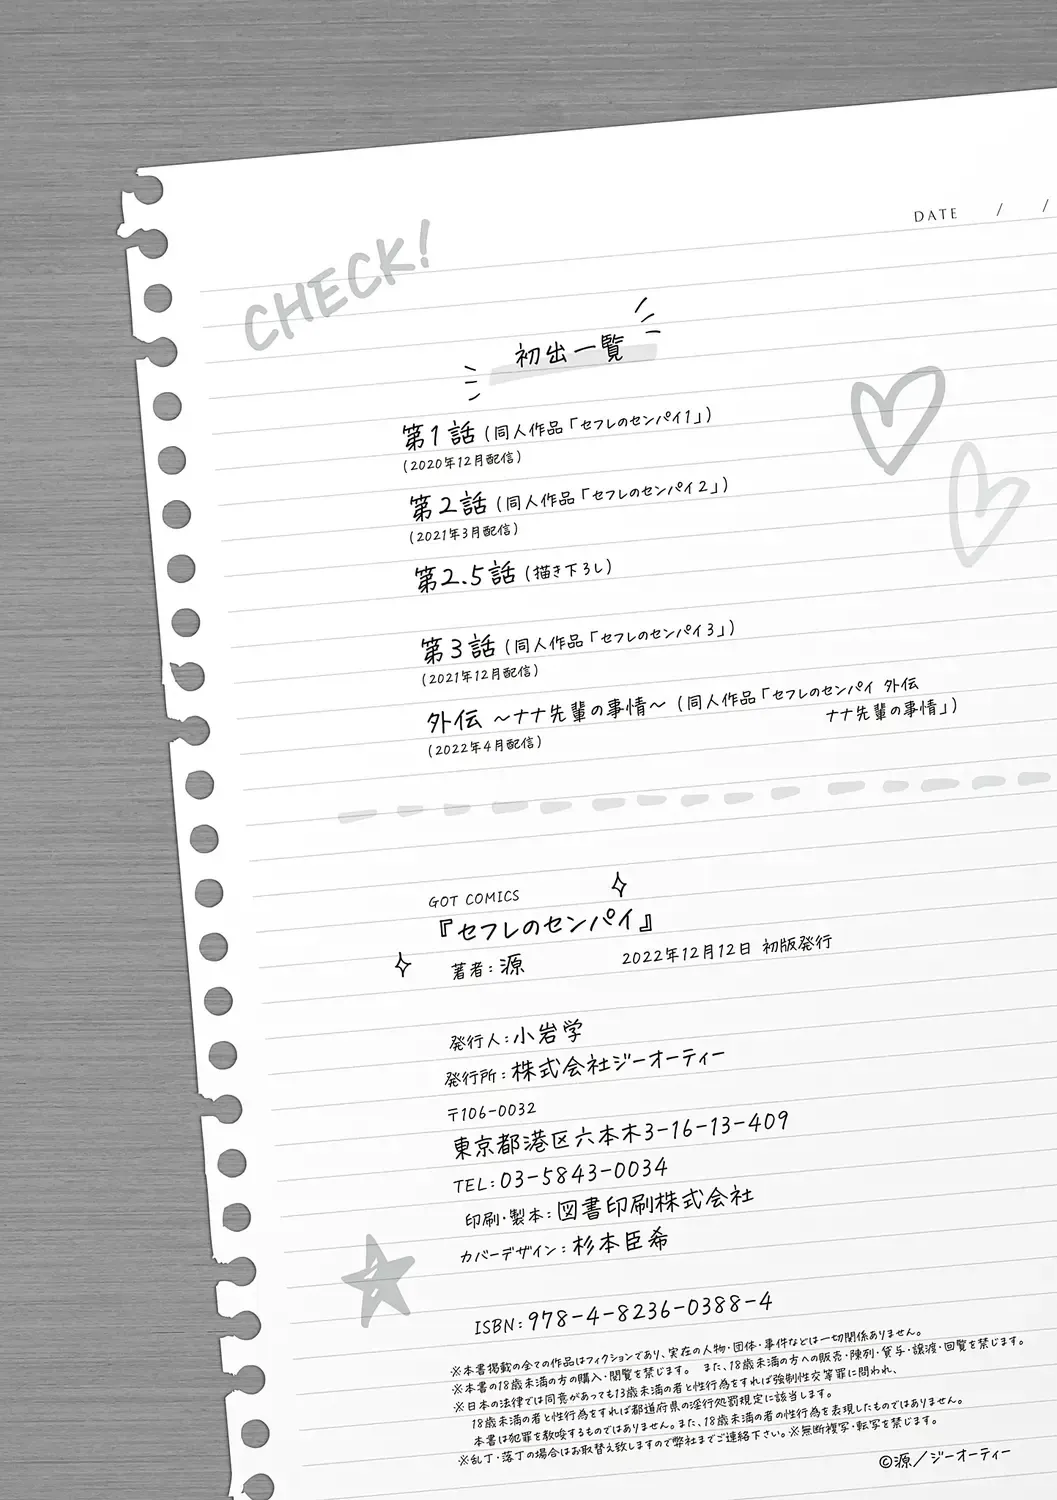 DATE / /
CHECK!
初出一覧
第1話(同人作品「セフレのセンパイ1」)
(2020年12月配信)
第2話(同人作品「セフレのセンパイ2」)
(2021年3月配信)
第2.5話(描き下ろし)
第3話(同人作品「セフレのセンパイ3」)
(2021年12月配信)
外伝 ～ナナ先輩の事情～(同人作品「セフレのセンパイ 外伝
ナナ先輩の事情」)
(2022年4月配信)
GOT COMICS
『セフレのセンパイ』
著者:源 2022年12月12日 初版発行
発行人:小岩学
発行所:株式会社ジーオーティー
〒106-0032
東京都港区六本木3-16-13-409
TEL:03-5843-0034
印刷・製本:図書印刷株式会社
カバーデザイン:杉本臣希
ISBN:978-4-8236-0388-4
※本書掲載の全ての作品はフィクションであり、実在の人物・団体・事件などとは一切関係ありません。
※本書の18歳未満の方の購入・閲覧を禁じます。 また、18歳未満の方への販売・陳列・貸与・譲渡・回覧を禁じます。
※日本の法律では同意があっても13歳未満の者と性行為をすれば強制性交等罪に問われ、
18歳未満の者と性行為をすれば都道府県の淫行処罰規定に該当します。
本書は犯罪を教唆するものではありません。また、18歳未満の者の性行為を表現したものではありません。
※乱丁・落丁の場合はお取替え致しますので弊社までご連絡下さい。※無断複写・転写を禁じます。
©源／ジーオーティー